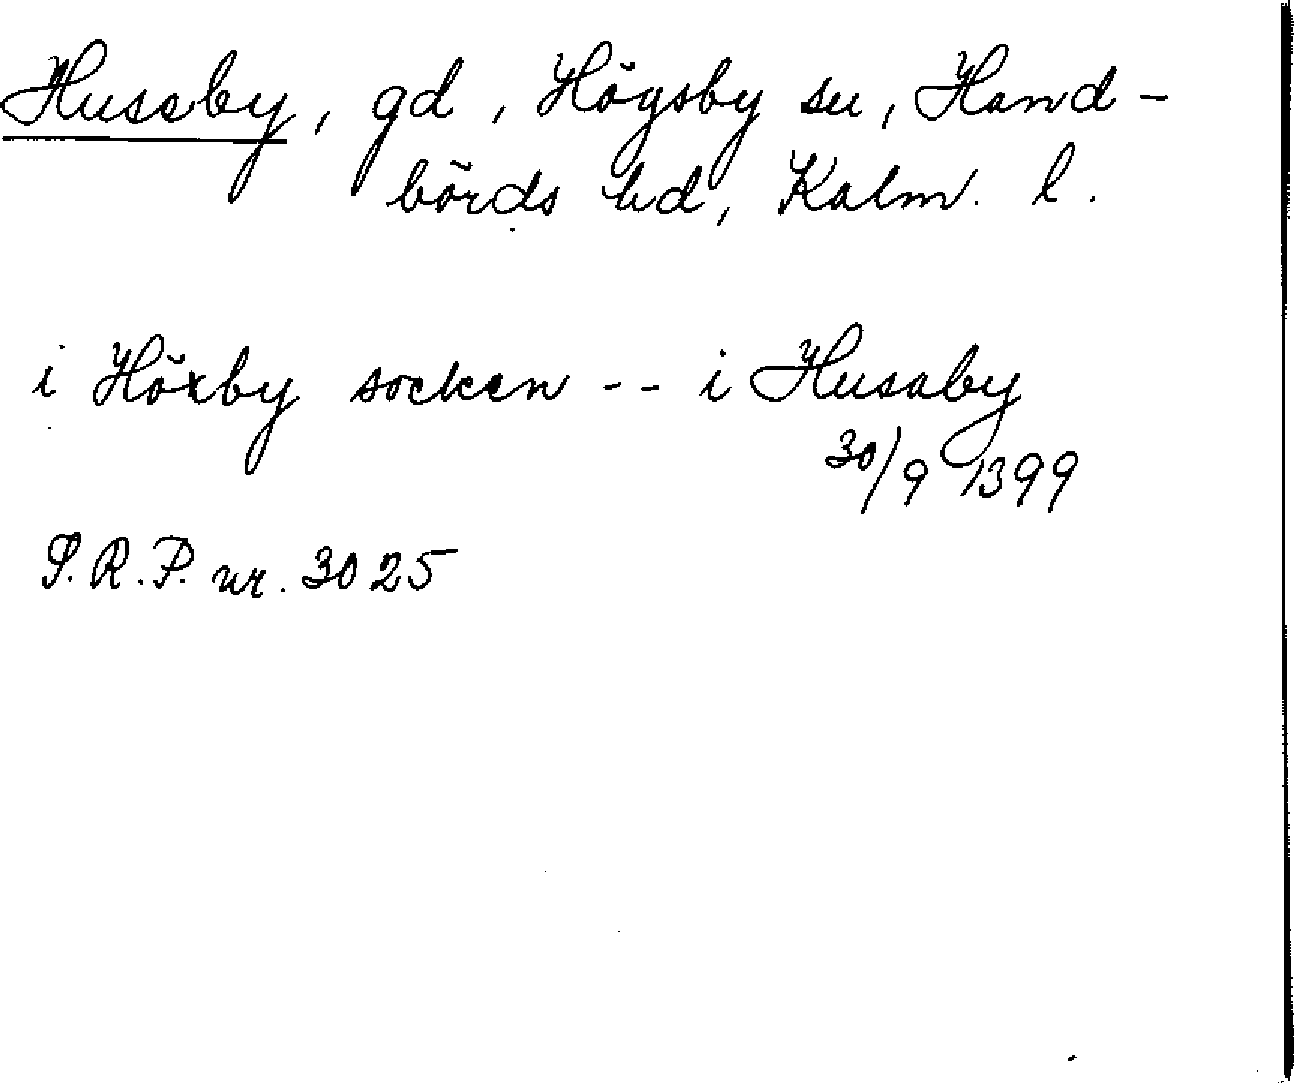 Husaby, gd, Högsby sn, Hand-
börds hd, Kalm. l.
i Höxby socken -- i Husaby
30/9 1399
S.R.P. nr. 3025